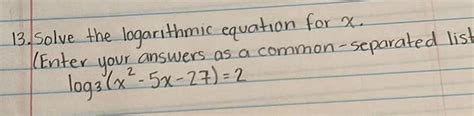 13. Solve the logarithmic equation for x.
(Enter your answers as a common-separated list
log₃(x² - 5x - 27) = 2